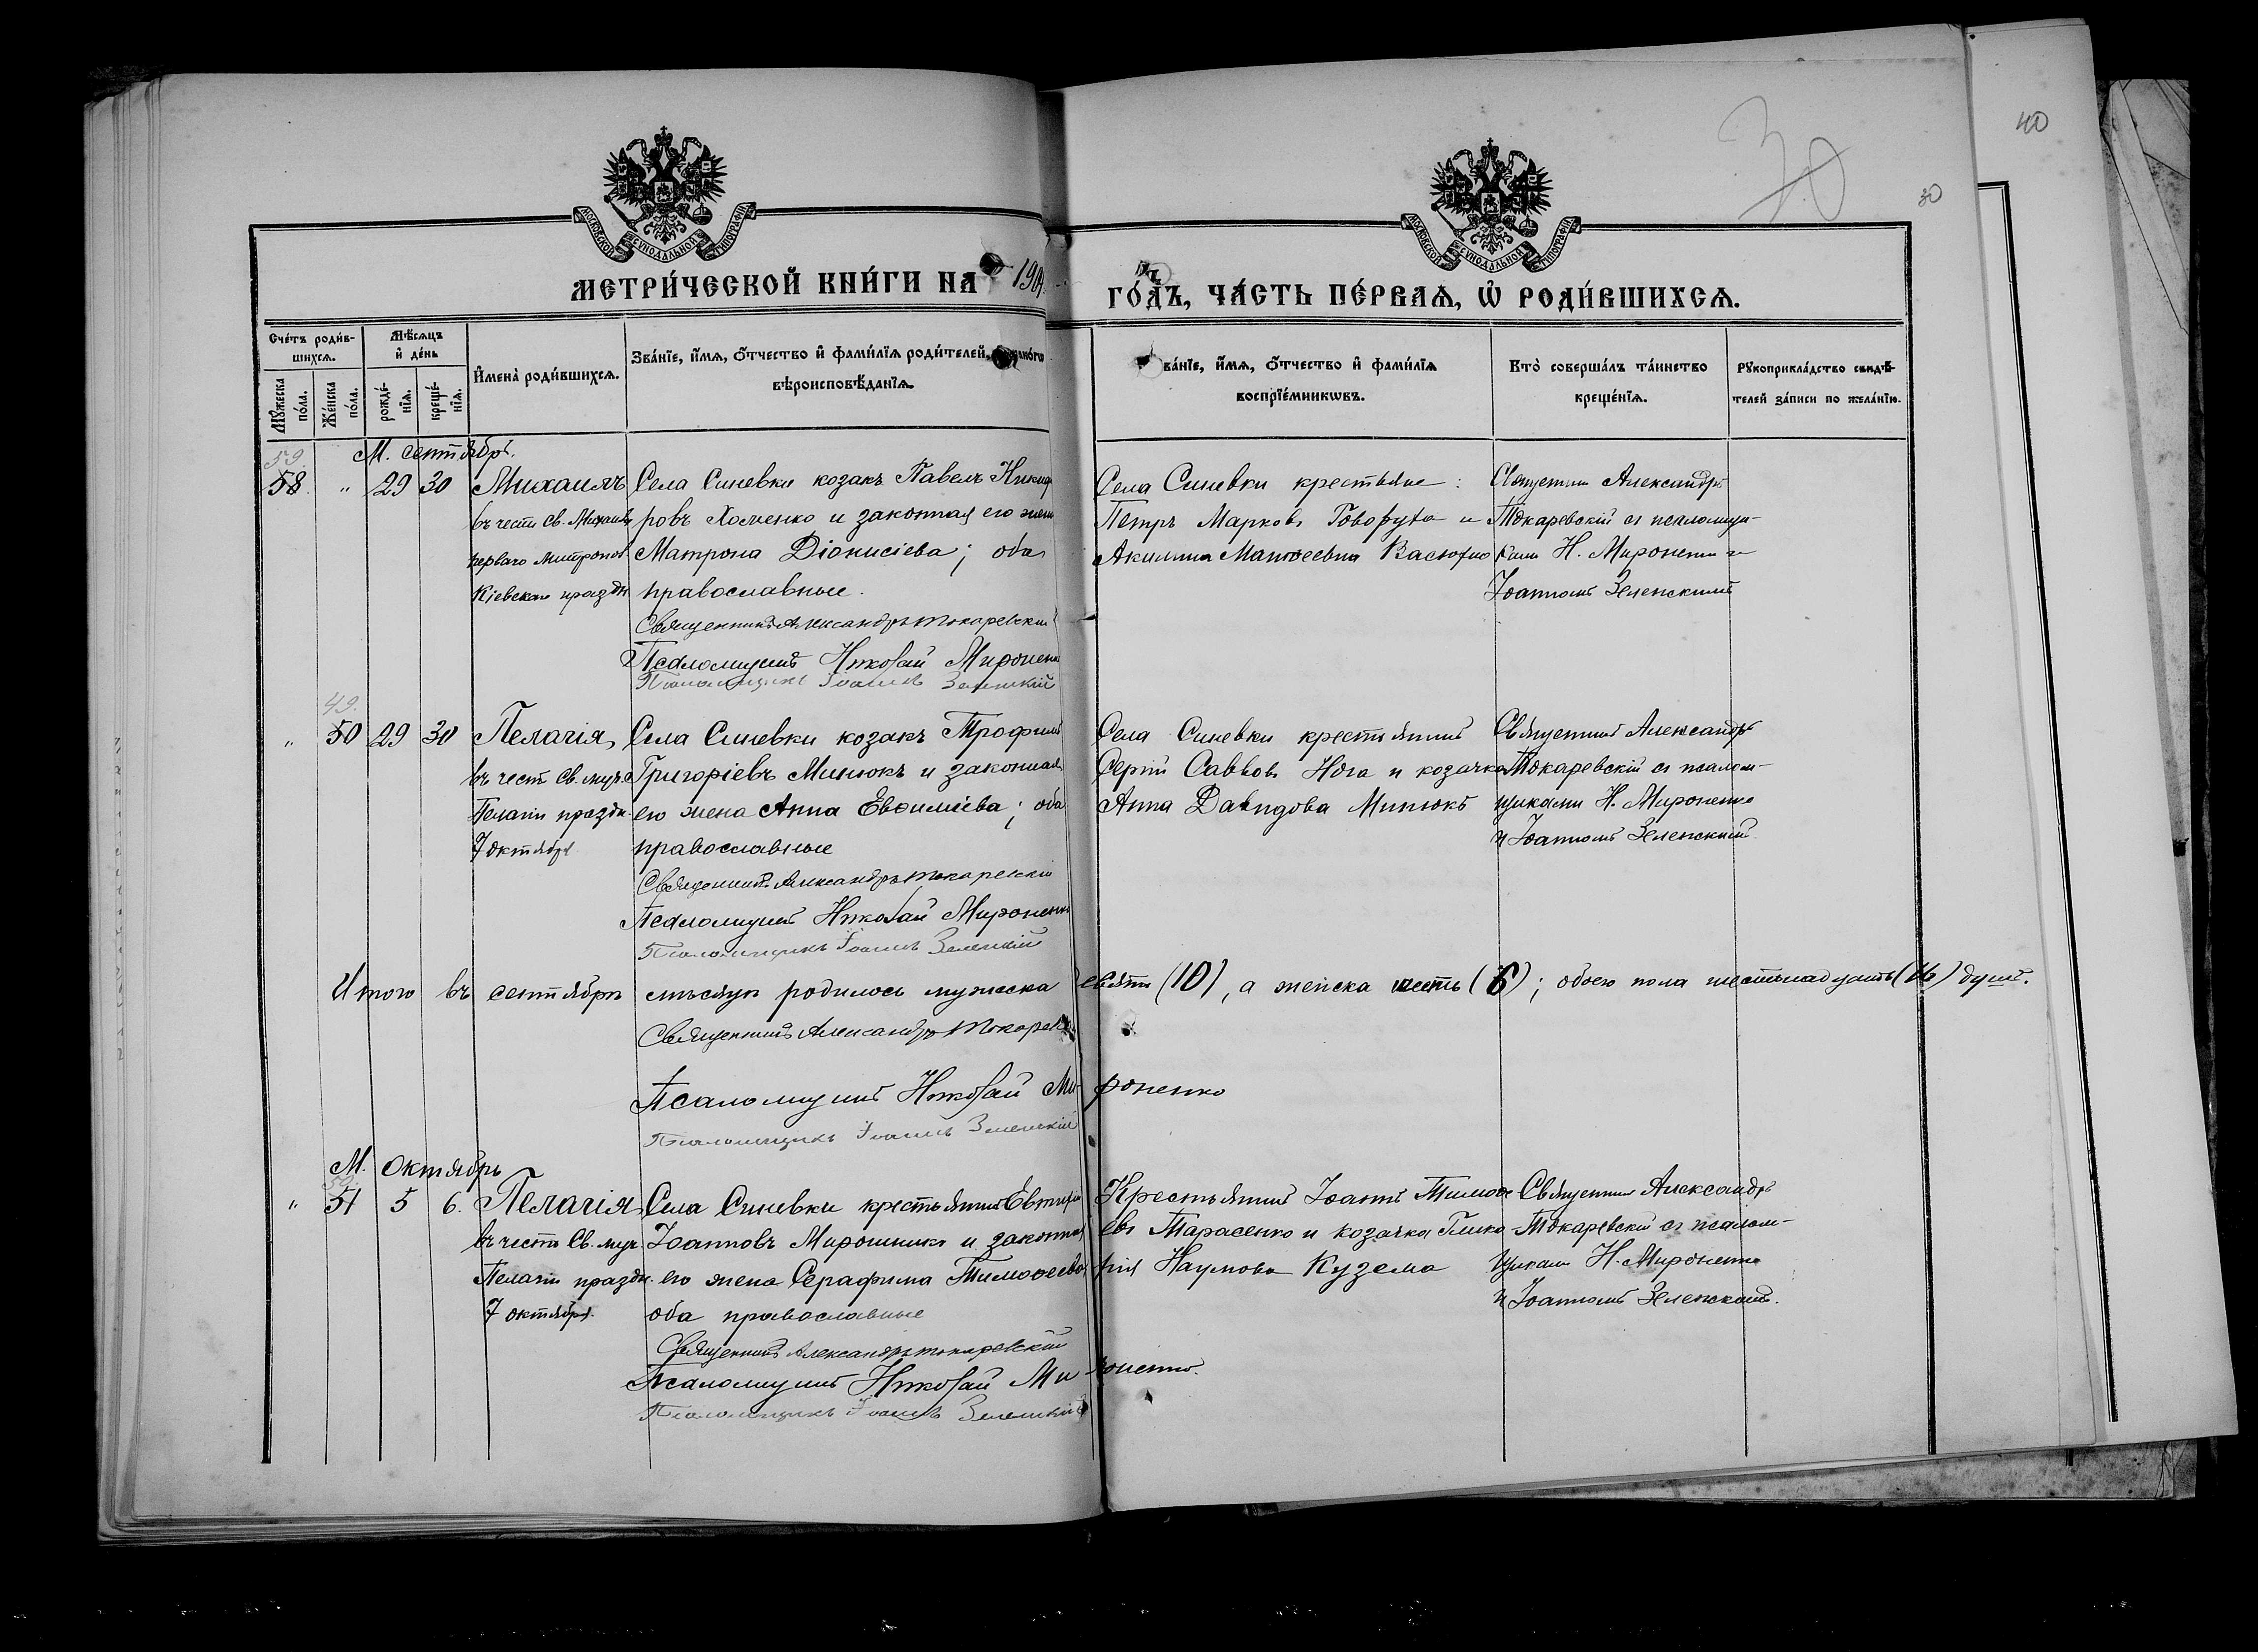 40
30
30
МОСКОВСКОЙ СУНОДАЛЬНОЙ ТИПОГРАФІИ
МОСКОВСКОЙ СУНОДАЛЬНОЙ ТИПОГРАФІИ
МЕТРИ́ЧЕСКОЙ КНИ́ГИ НА 190
ГО́ДЪ, ЧА́СТЬ ПЕ́РВАѦ, Ѡ҆ РОДИ́ВШИХСѦ.
Сче́тъ роди́вшихсѧ.
Мѹ́жеска по́ла.
Же́нска по́ла.
Мѣ́сѧцъ и҆ де́нь
рожде́нїѧ.
креще́нїѧ.
И҆мена̀ роди́вшихсѧ.
Зва́нїе, и҆́мѧ, ѻ҆́тчество и҆ фами́лїѧ роди́телей,
вѣроисповѣ́данїѧ.
ва́нїе, и҆́мѧ, ѻ҆́тчество и҆ фами́лїѧ
воспрїе́мникѡвъ.
Кто̀ соверша́лъ та́инство
креще́нїѧ.
Рѹкоприкла́дство свидѣ́телей за́писи по жела́нїю.
М. Сентябрь.
59.
58. " 29 30 Михаилъ
въ честь Св. Михаила
перваго митропол.
Кіевскаго праздн
Села Синевки козакъ Павелъ Никифо
ровъ Хоменко и законная его жена
Матрона Діонисіева; оба
православные.
Священникъ Александръ Токаревскій
Псаломщикъ Николай Мироненко
Псаломщикъ Іоаннъ Зеленскій
Села Синевки крестьяне:
Петръ Марковъ Говоруха и
Акилина Матѳеевна
Священникъ Александръ
Токаревскій съ псаломщи-
ками Н. Мироненко и
Іоанномъ Зеленскимъ
49.
" 50 29 30 Пелагія
въ честь Св. муч.
Пелагіи праздн.
7 октября
Села Синевки козакъ Трофимъ
Григоріевъ Минюкъ и законная
его жена Анна Евѳиміева; оба
православные
Священникъ Александръ Токаревскій
Псаломщикъ Николай Мироненко
Псаломщикъ Іоаннъ Зеленскій
Села Синевки крестьянинъ
Сергій Саввовъ Нога и козачка
Анна Давидова Минюкъ
Священникъ Александръ
Токаревскій съ псалом-
щиками Н. Мироненко
и Іоанномъ Зеленскимъ.
Итого въ сентябрѣ мѣсяцѣ родилось мужеска (10), а женска шесть (6); обоего пола шестнадцать (16) душъ.
Священникъ Александръ Токаревскій
Псаломщикъ Николай Мироненко
Псаломщикъ Іоаннъ Зеленскій
М. Октябрь
50.
" 51 5 6. Пелагія
въ честь Св. муч.
Пелагіи праздн.
7 октября.
Села Синевки крестьянинъ Евтихій
Іоанновъ Мирошникъ и законная
его жена Серафима Тимоѳеева
оба православные
Священникъ Александръ Токаревскій
Псаломщикъ Николай Мироненко.
Псаломщикъ Іоаннъ Зеленскій
Крестьянинъ Іоаннъ Тимоѳе
евъ Тарасенко и козачка Глике
рія Наумова Кузема
Священникъ Александръ
Токаревскій съ псалом-
щиками Н. Мироненко
и Іоанномъ Зеленскимъ.